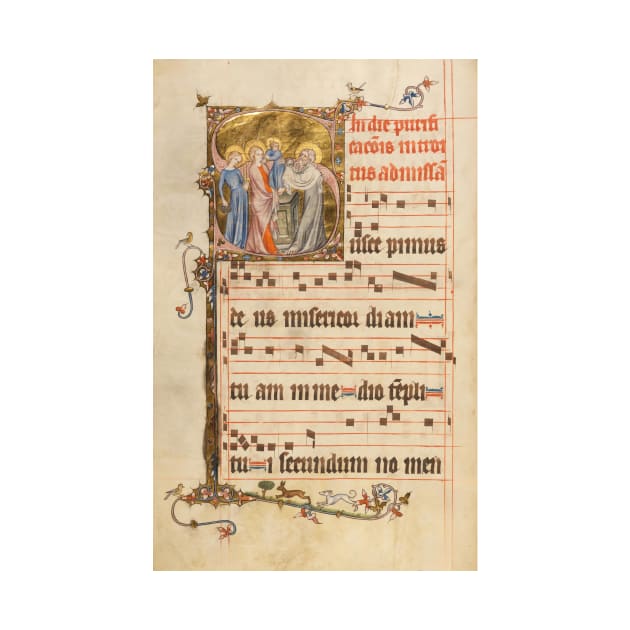 In die purifi
cacōis introi
tus ad missā
Susce pimus
de us misericor diam
tu am in me dio tēpli
tu i secundum no men